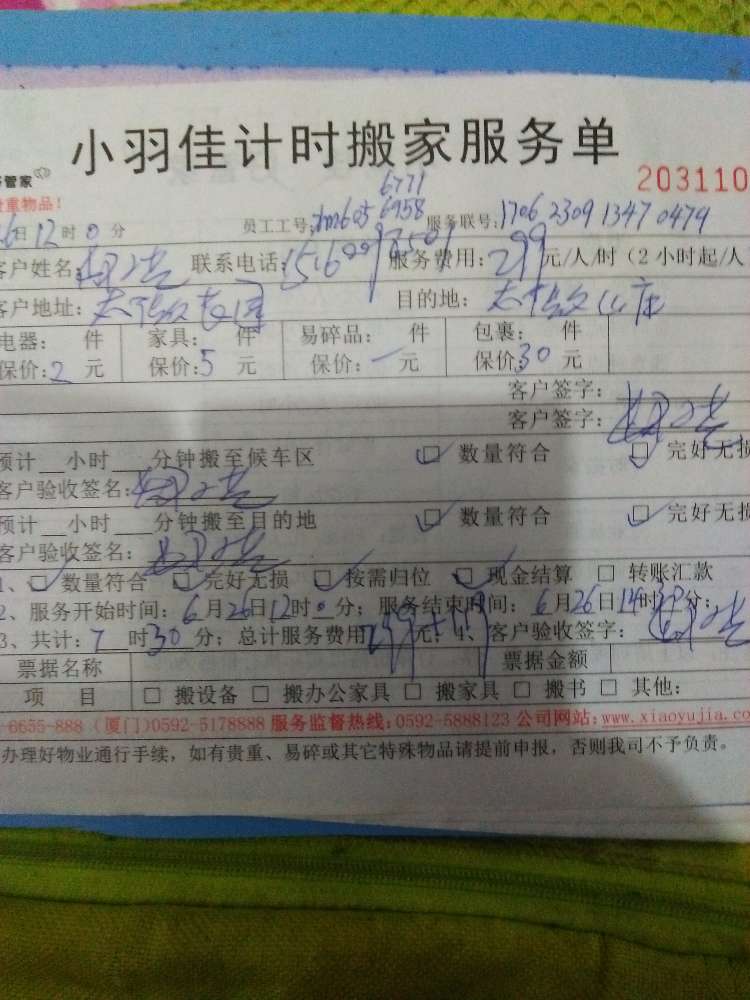 小羽佳计时搬家服务单
管家
203110
贵重物品!
6771
6日12时0分 员工工号: 6958 服务联号:1706 2309 1347 0479
客户姓名: 联系电话: 服务费用:299元/人/时(2小时起/人
客户地址: 目的地:
电器: 件 家具: 件 易碎品: 件 包裹: 件
保价:2 元 保价:5 元 保价:一 元 保价:30 元
客户签字:
客户签字:
预计__小时___分钟搬至候车区 ☑ 数量符合 ☑ 完好无损
客户验收签名:
预计__小时___分钟搬至目的地 ☑ 数量符合 ☑ 完好无损
客户验收签名:
1、☑ 数量符合 ☑ 完好无损 ☑ 按需归位 ☑ 现金结算 □ 转账汇款
2、服务开始时间:6月26日12时0分;服务结束时间:6月26日14时30分;
3、共计:7 时30分;总计服务费用 元;4、客户验收签字:
票据名称 票据金额
项 目 □ 搬设备 □ 搬办公家具 □ 搬家具 □ 搬书 □ 其他:
-6655-888 (厦门)0592-5178888 服务监督热线:0592-5888123 公司网站:www.xiaoyujia.co
办理好物业通行手续,如有贵重、易碎或其它特殊物品请提前申报,否则我司不予负责。